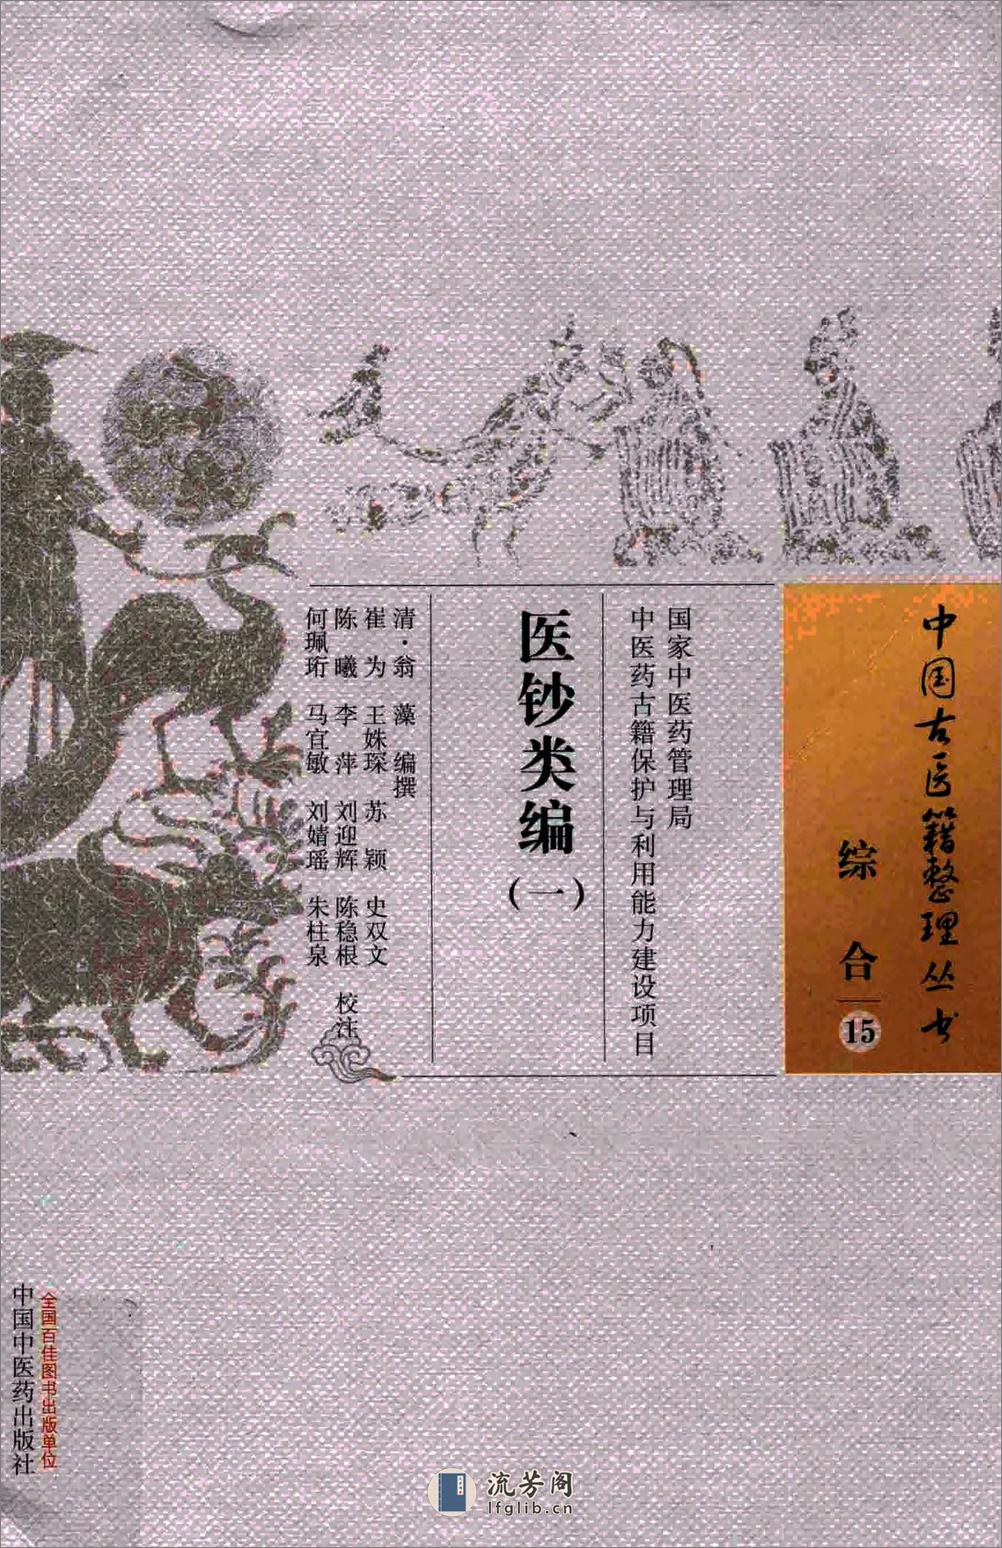 中国古医籍整理丛书
综合
15
国家中医药管理局
中医药古籍保护与利用能力建设项目
医钞类编
（一）
清·翁藻 编撰
崔为 王姝琛 苏颖 史双文
陈曦 李萍 刘迎辉 陈稳根 校注
何珮珩 马宜敏 刘婧瑶 朱柱泉
全国百佳图书出版单位
中国中医药出版社
流芳阁
lfglib.cn